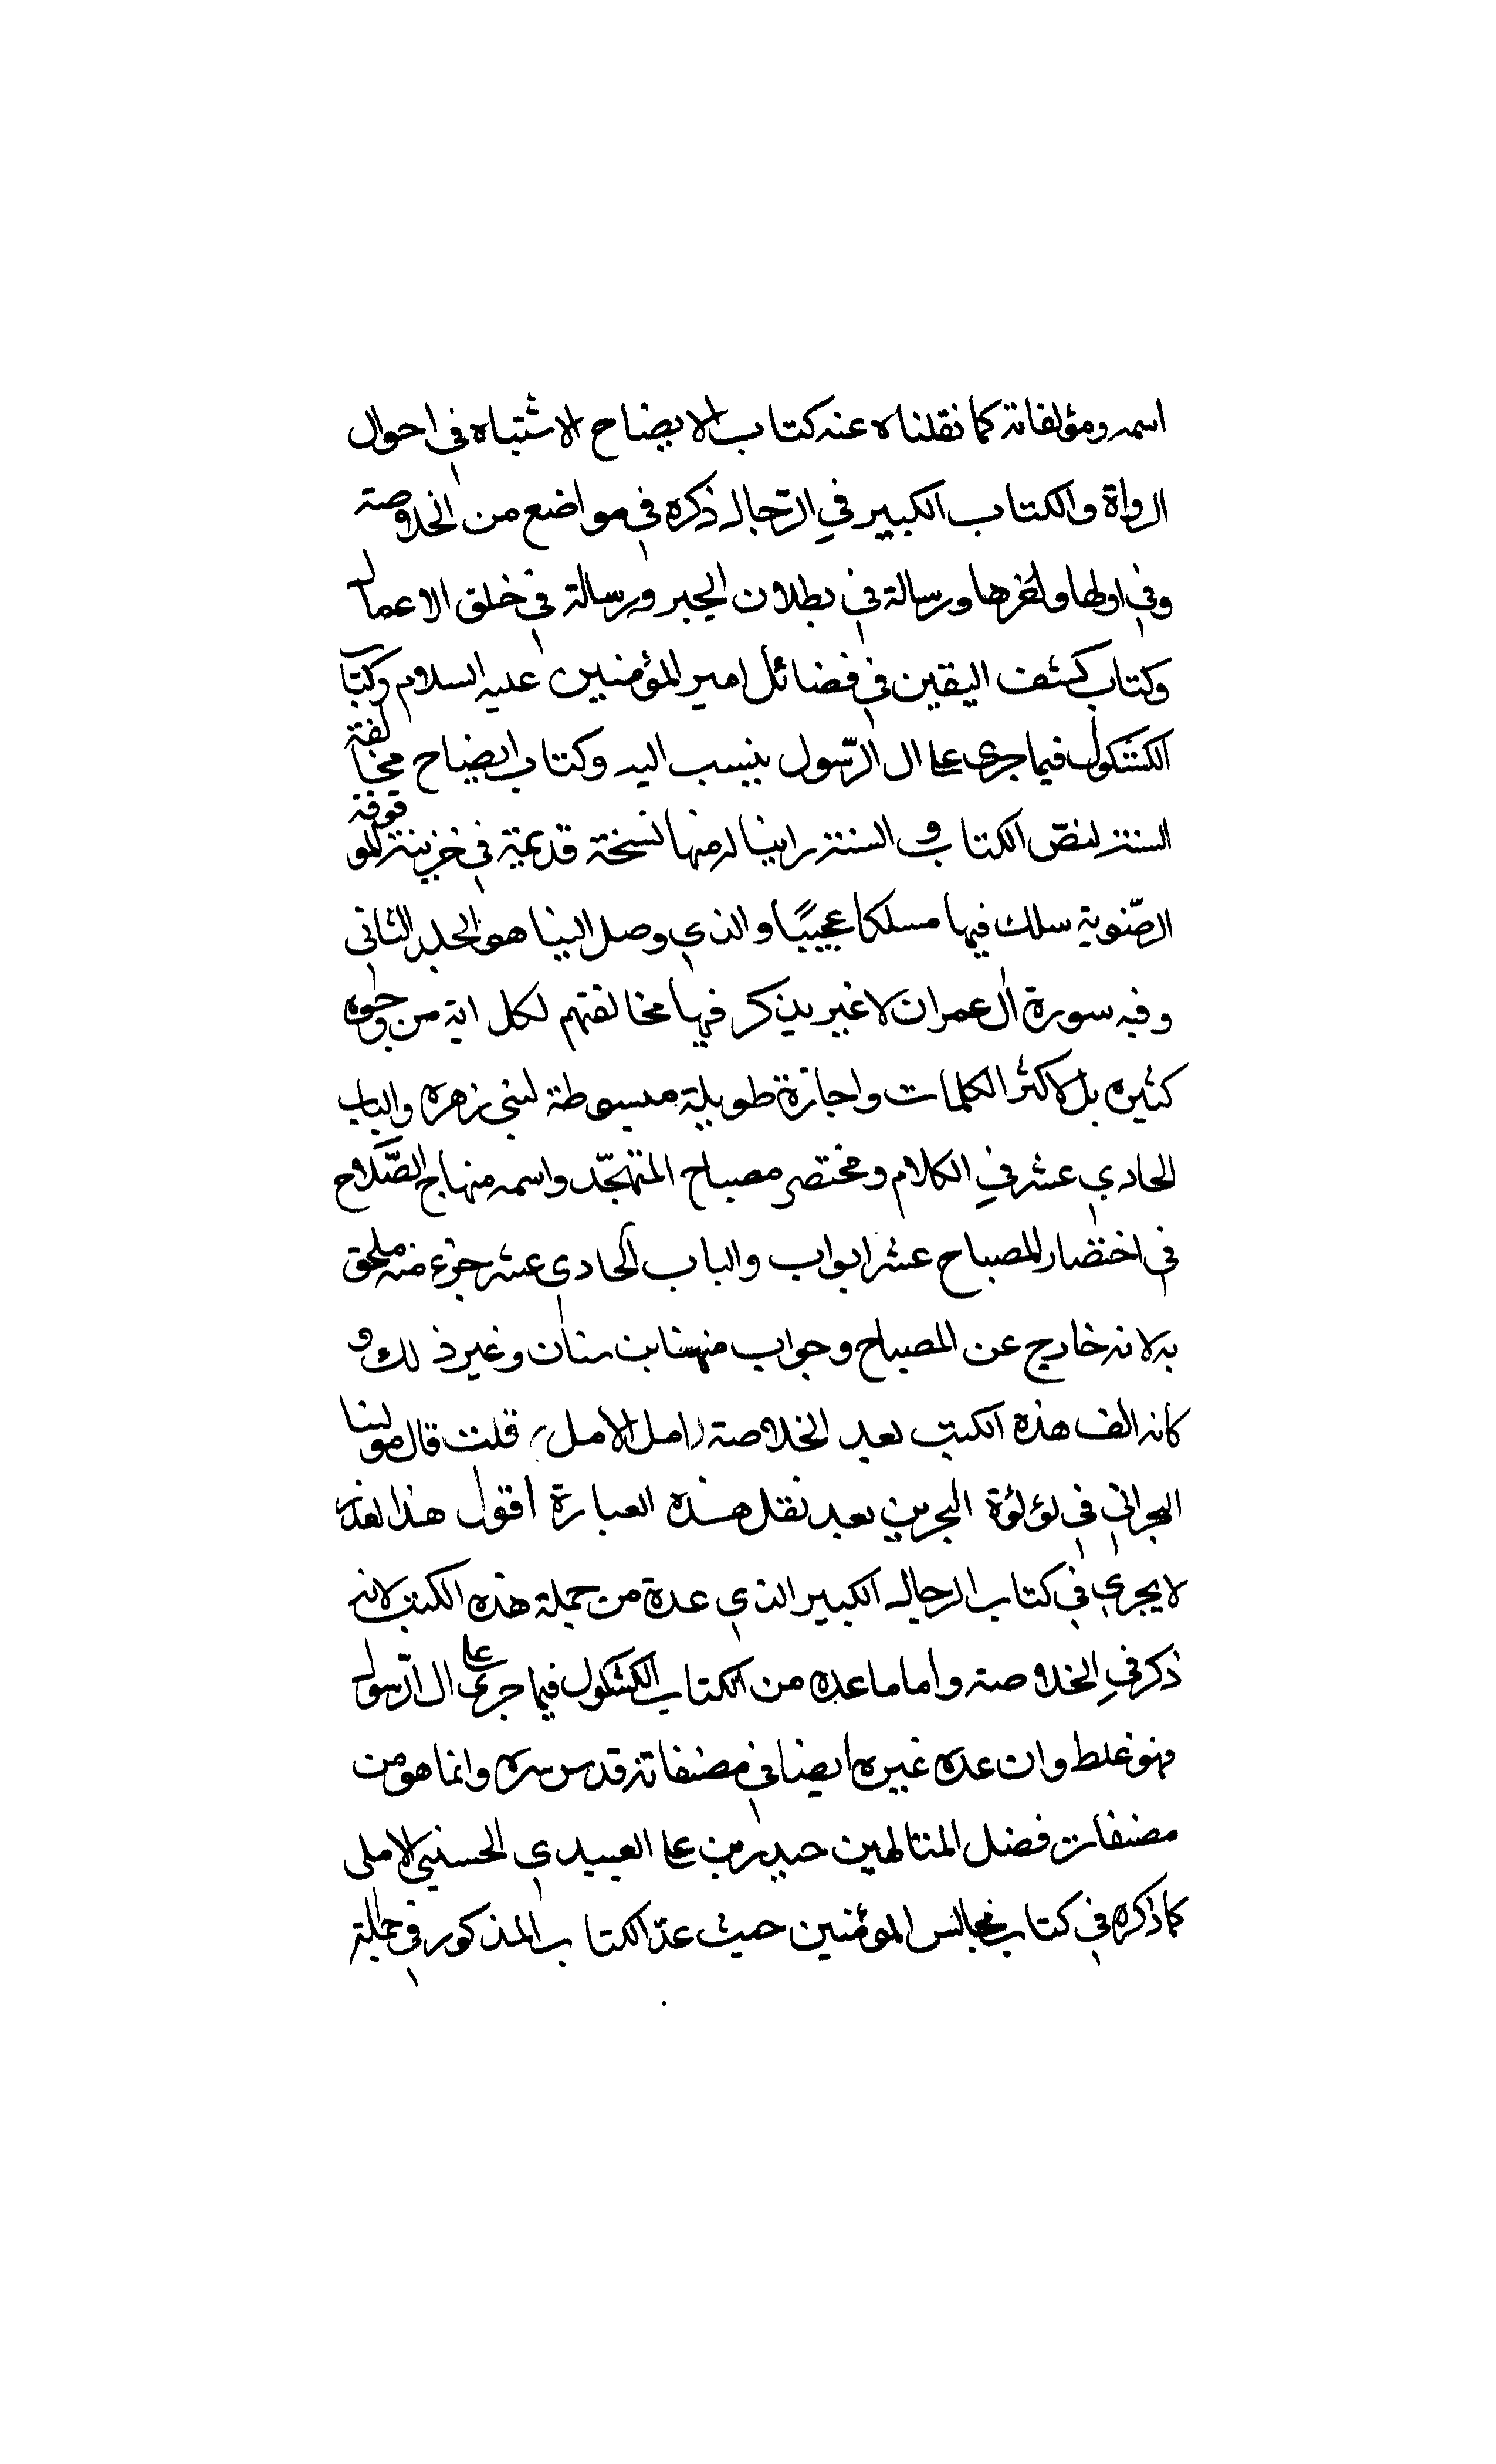 اسمه ومؤلفاته كما نقلناه عنه كتاب الايضاح الاشتباه في احوال
الرواة والكتاب الكبير في الرّجال ذكره في مواضع من الخلاصة
وفي اولها واخرها ورسالة في بطلان الجبر ورسالة في خلق الاعمال
وكتاب كشف اليقين في فضائل امير المؤمنين عليه السلام وكتاب
الكشكول فيما جرى على ال الرّسول ينسب اليه وكتاب ايضاح مخالفة
السنة لنصّ الكتاب و السنة راينا له منها نسخة قديمة في خزينة الموقوفة
الرضوية سلك فيها مسلكا عجيبًا والذي وصل الينا هو الجلد الثاني
وفيه سورة ال عمران لا غير يذكر فيها مخالفتهم لكل اية من وجوه
كثيره بل لاكثر الكلمات واجازة طويلة مبسوطة لبني زهره والباب
الحادي عشر في الكلام ومختصر مصباح المتهجّد واسمه منهاج الصّلاح
في اختصار المصباح عشر ابواب والباب الحادي عشر جزء منه ملحق
به لانه خارج عن المصباح وجواب مهنا بن سنان وغير ذلك و
كانه الف هذه الكتب بعد الخلاصة (امل الامل) قلت قال مولينا
البحراني في لؤلؤة البحرين بعد نقل هذه العبارة اقول هذا العذر
لا يجري في كتاب الرجال الكبير الذي عدة من جملة هذه الكتب لانه
ذكر في الخلاصة واما ما عده من الكتاب الكشكول فيما جرى على ال الرّسول
فهو غلط وان عده غيره ايضا في مصنفاته قدس سره وانما هو من
مصنفات فضل المتالهين حيدر بن على العبيدي الحسيني الاملى
كما ذكره في كتاب مجالس المؤمنين حيث عدّ الكتاب المذكور في جملة